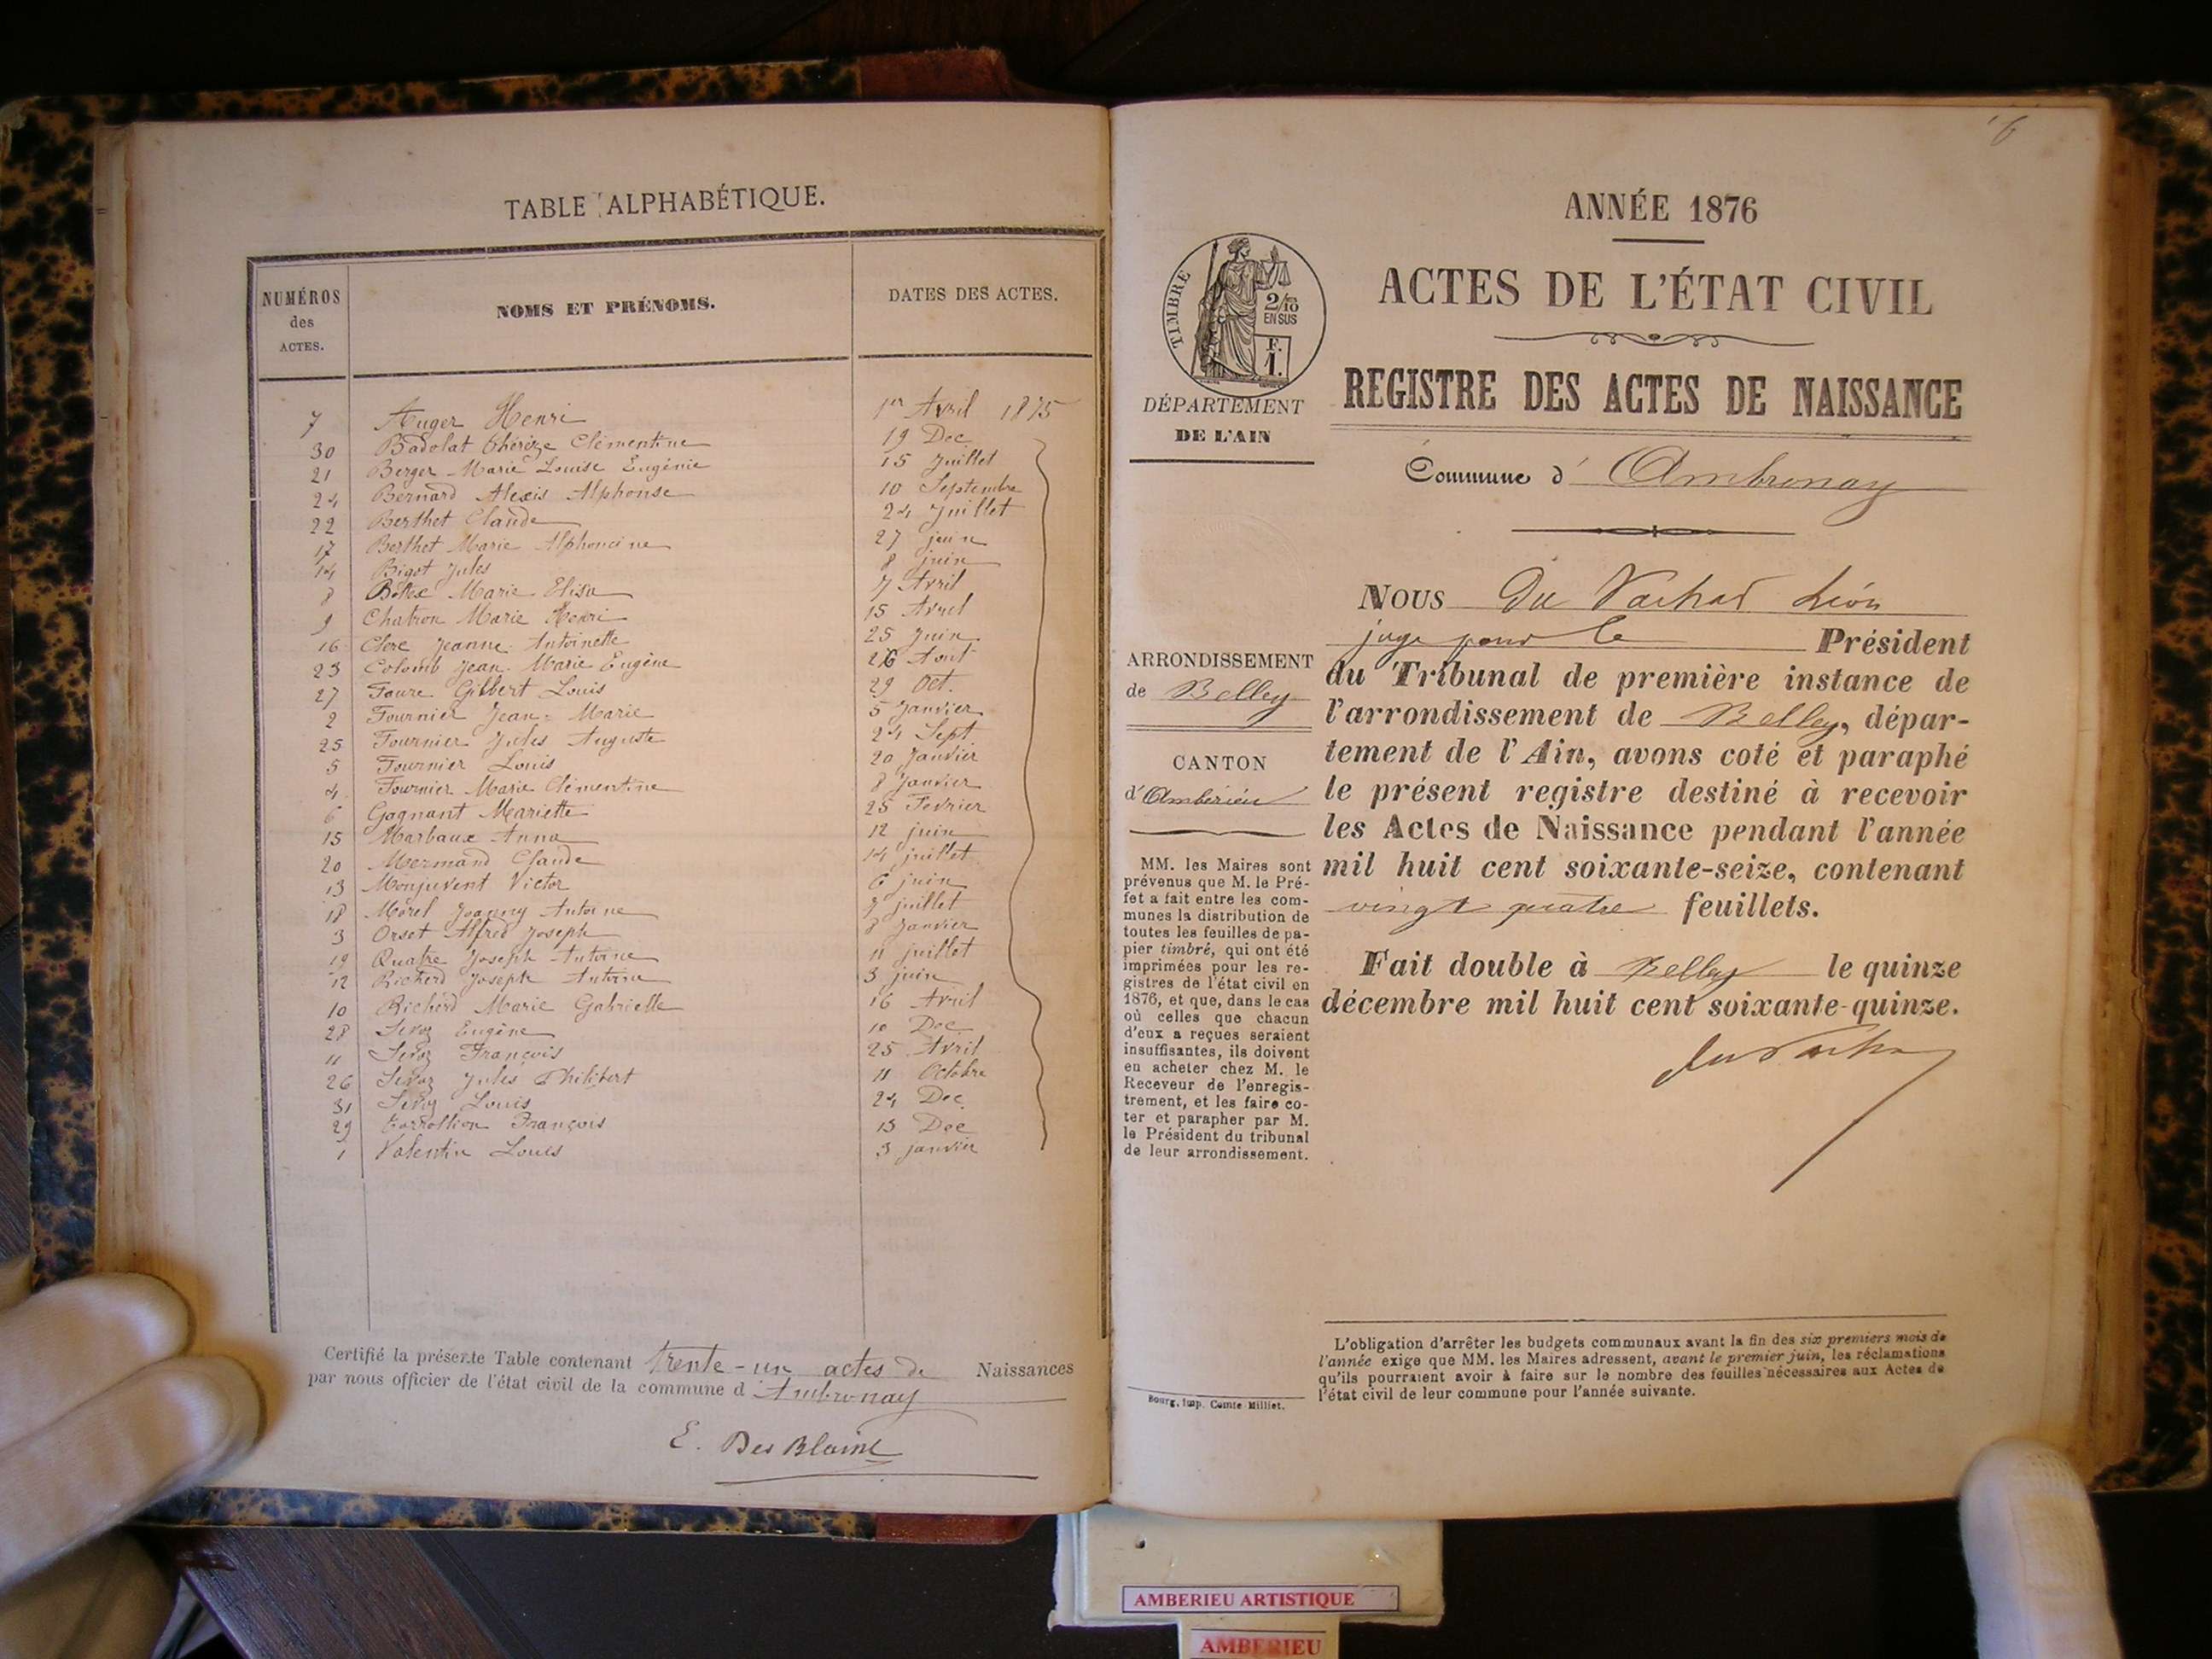 TABLE ALPHABÉTIQUE.
NUMÉROS des ACTES. NOMS ET PRÉNOMS. DATES DES ACTES.
7 Auger Henri 1er Avril 1875
30 Badolat Thérèze Clémentine 19 Dec
21 Berger Marie Louise Eugénie 15 Juillet
24 Bernard Alexis Alphonse 10 Septembre
22 Berthet Claude 24 Juillet
17 Berthet Marie Alphoncine 27 juin
14 Bigot Jules 8 juin
8 Bottex Marie Elisa 7 Avril
9 Chatron Marie Henri 15 Avril
16 Clerc Jeanne Antoinette 25 Juin
23 Colomb Jean Marie Eugène 26 Aout
27 Faure Gilbert Louis 29 Oct.
2 Fournier Jean-Marie 5 Janvier
25 Fournier Jules Auguste 24 Sept
5 Fournier Louis 20 Janvier
4 Fournier Marie Clémentine 8 Janvier
6 Gagnant Mariette 25 Fevrier
15 Marbaux Anna 12 juin
20 Mermand Claude 14 juillet
13 Monjuvent Victor 6 juin
18 Morel Joanny Antoine 7 juillet
3 Orset Alfred Joseph 8 Janvier
19 Quatre Joseph Antoine 11 juillet
12 Richerd Joseph Antoine 3 juin
10 Richerd Marie Gabrielle 16 Avril
28 Servoz Eugène 10 Dec
11 Servoz François 25 Avril
26 Servoz Jules Philibert 11 Octobre
31 Louis 24 Dec.
29 François 13 Dec
1 Valentin Louis 3 janvier
Certifié la présente Table contenant trente-un actes de Naissances
par nous officier de l'état civil de la commune d'Ambronay
E. Des Blains
6
ANNÉE 1876
ACTES DE L'ÉTAT CIVIL
REGISTRE DES ACTES DE NAISSANCE
TIMBRE
2/10
EN SUS
F.
1.
DÉPARTEMENT
DE L'AIN
Commune d' Ambronay
Nous Du Vachat Léon
juge pour le Président
du Tribunal de première instance de
l'arrondissement de Belley, dépar-
tement de l'Ain, avons coté et paraphé
le présent registre destiné à recevoir
les Actes de Naissance pendant l'année
mil huit cent soixante-seize, contenant
vingt quatre feuillets.
Fait double à Belley le quinze
décembre mil huit cent soixante-quinze.
du Vachat
ARRONDISSEMENT
de Belley
CANTON
d'Ambérieu
MM. les Maires sont
prévenus que M. le Pré-
fet a fait entre les com-
munes la distribution de
toutes les feuilles de pa-
pier timbré, qui ont été
imprimées pour les re-
gistres de l'état civil en
1876, et que, dans le cas
où celles que chacun
d'eux a reçues seraient
insuffisantes, ils doivent
en acheter chez M. le
Receveur de l'enregis-
trement, et les faire co-
ter et parapher par M.
le Président du tribunal
de leur arrondissement.
Bourg, imp. Comte-Milliet.
L'obligation d'arrêter les budgets communaux avant la fin des six premiers mois de
l'année exige que MM. les Maires adressent, avant le premier juin, les réclamations
qu'ils pourraient avoir à faire sur le nombre des feuilles nécessaires aux Actes de
l'état civil de leur commune pour l'année suivante.
AMBERIEU ARTISTIQUE
AMBERIEU